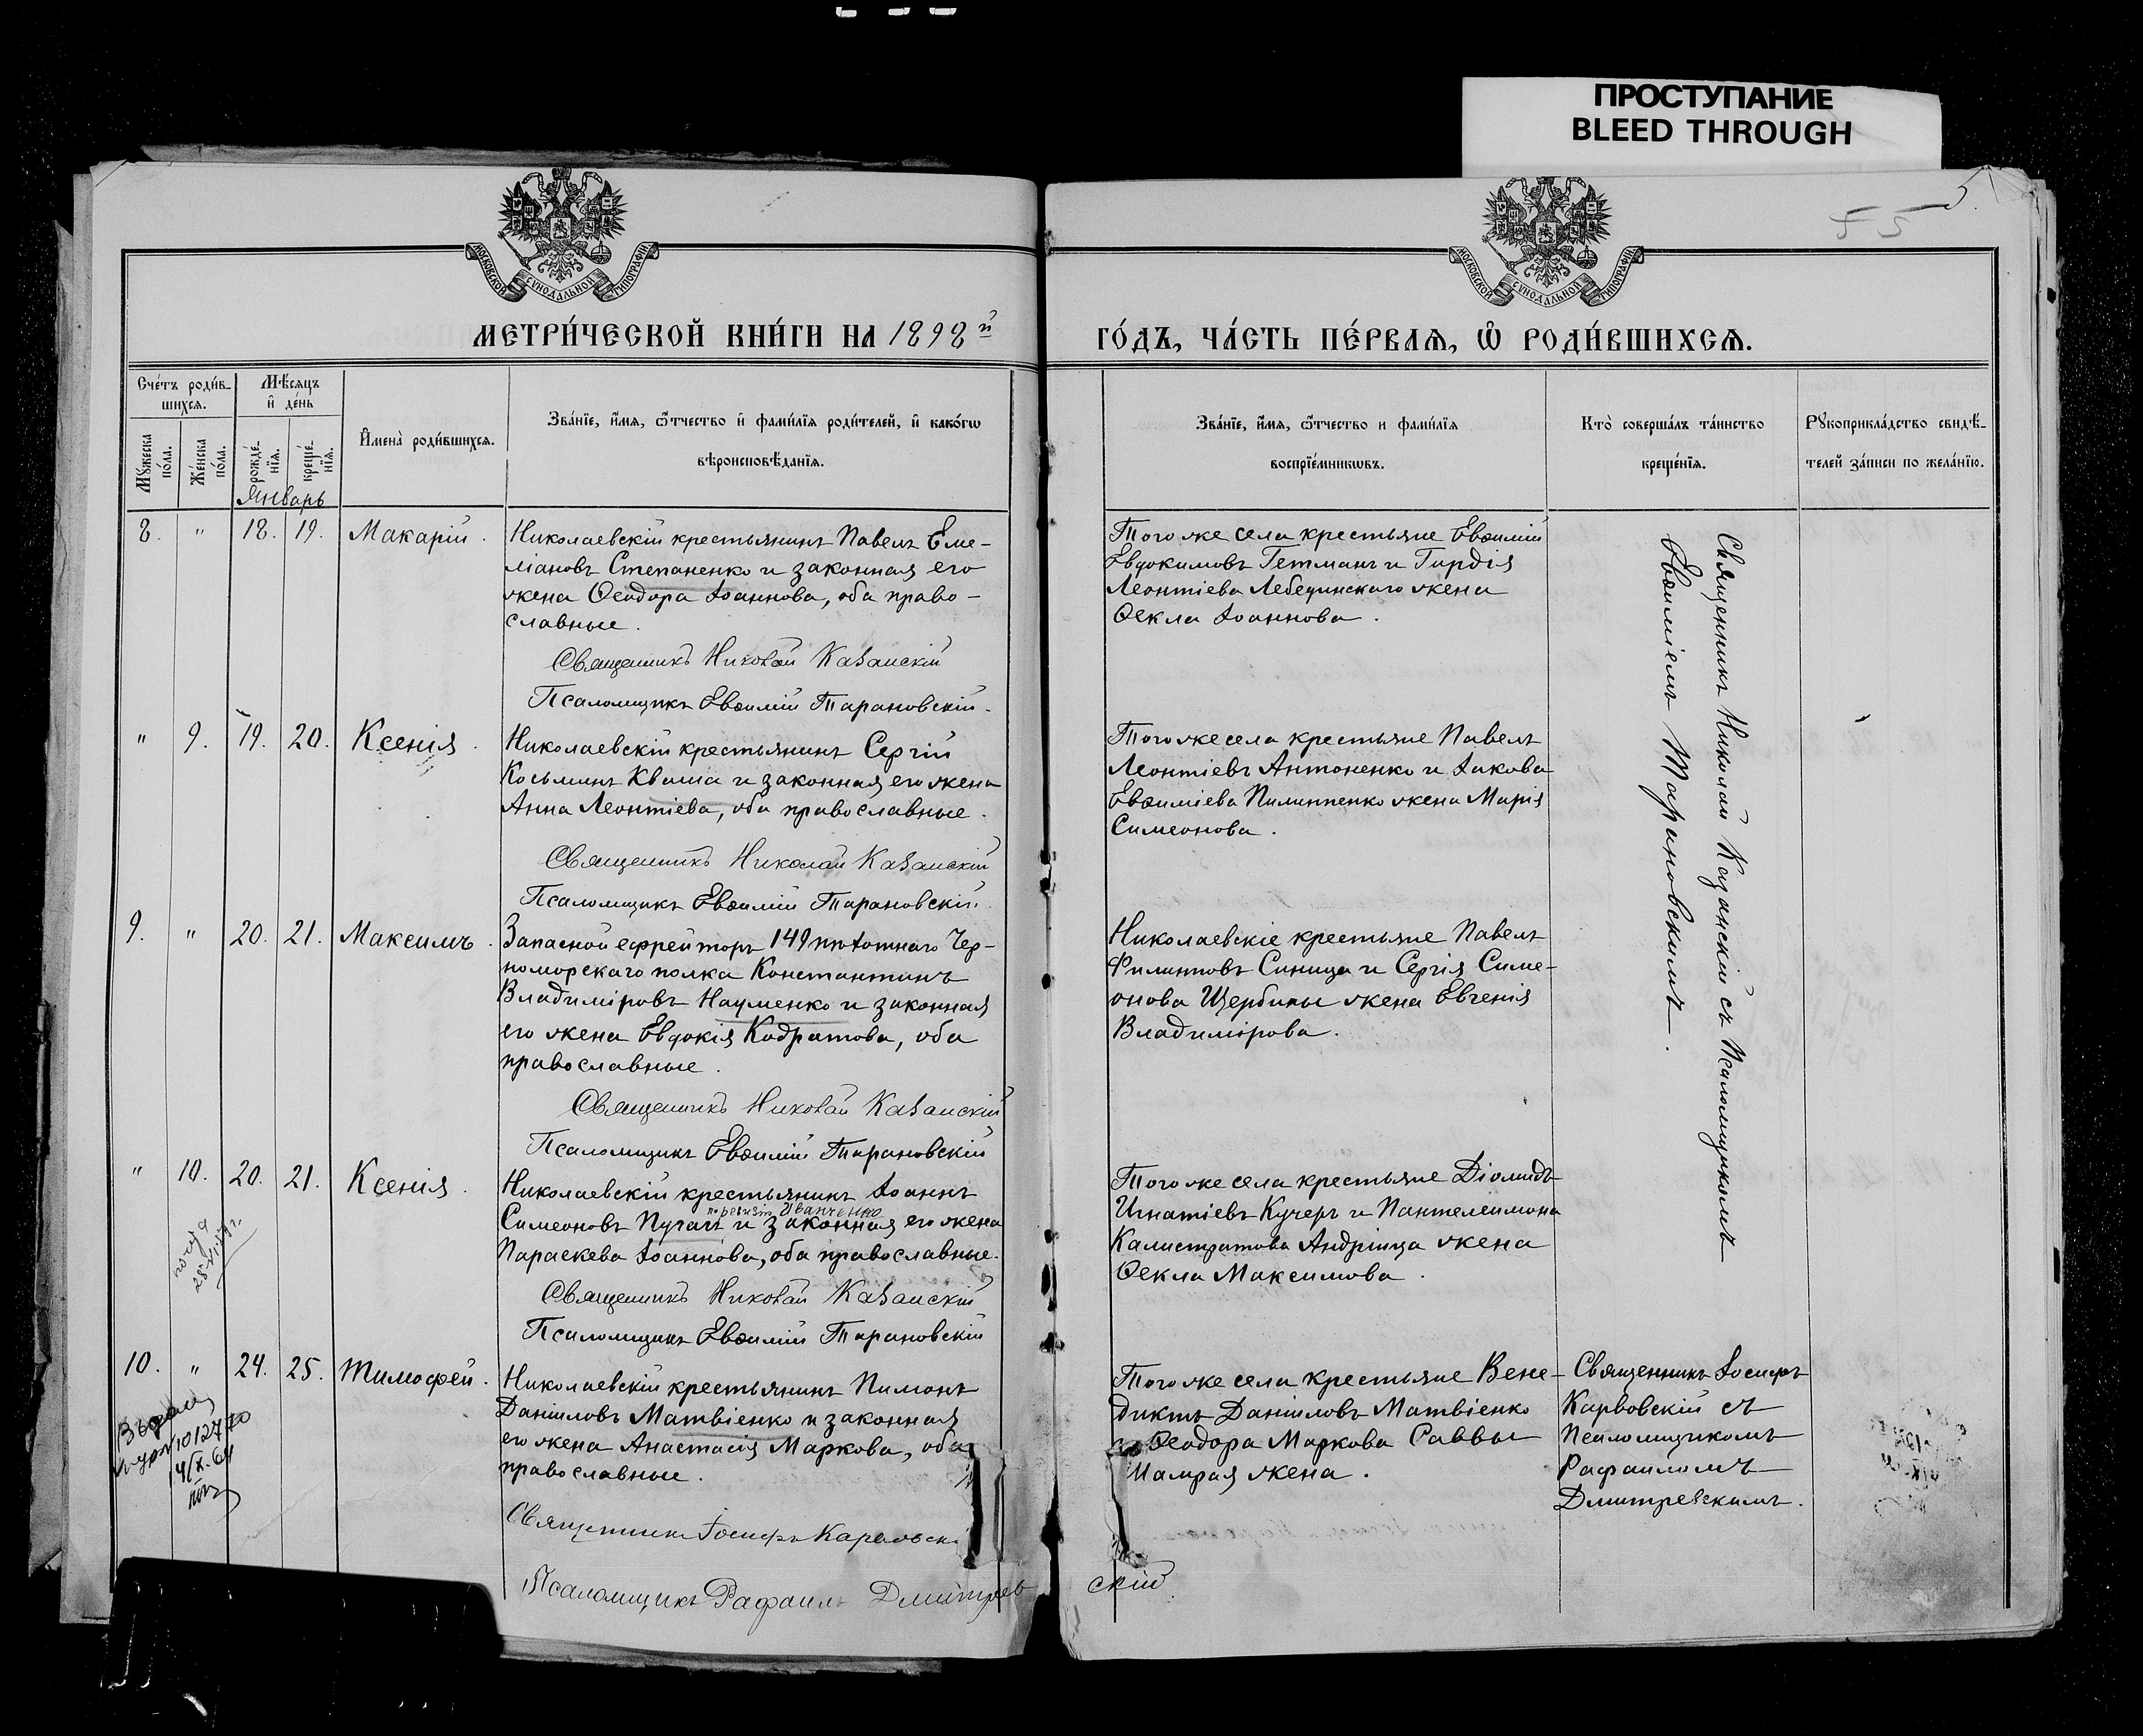 ПРОСТУПАНИЕ
BLEED THROUGH
55
5.
МОСКОВСКОЙ СѴНОДАЛЬНОЙ ТИПОГРАФІИ
МОСКОВСКОЙ СѴНОДАЛЬНОЙ ТИПОГРАФІИ
МЕТРИ́ЧЕСКОЙ КНИ́ГИ НА 1898й
ГО́ДЪ, ЧА́СТЬ ПЕ́РВАѦ, Ѽ РОДИ́ВШИХСѦ.
Сче́тъ роди́в-
шихся.
Мѣ́сяцъ
и҆ де́нь
Мꙋ́жеска по́ла.
Же́нска по́ла.
рожде́-нїя.
креще́-нїя.
И҆мена̀ роди́вшихся.
Зва́нїе, и҆́мя, ѻ҆́тчество и҆ фами́лїя роди́телей, и҆ како́гѡ
вѣроисповѣ́данїя.
Зва́нїе, и҆́мя, ѻ҆́тчество и фами́лїя
воспрїе́мникѡвъ.
Кто̀ соверша́лъ та́инство
креще́нїя.
Рꙋкоприкла́дство свидѣ́-
телей за́писи по жела́нїю.
Январь
8. " 18. 19. Макарій.
Николаевскій крестьянинъ Павелъ Еме-
ліановъ Степаненко и законная его
жена Ѳеодора Іоаннова, оба право-
славные.
Священникъ Николай Казанскій
Псаломщикъ Евѳимій Тарановскій.
Того же села крестьяне Евѳимій
Евдокимовъ Гетманъ и Гордія
Леонтіева Лебединскаго жена
Ѳекла Іоаннова.
Священникъ Николай Казанскій съ Псаломщикомъ
Евѳиміемъ Тарановскимъ.
" 9. 19. 20. Ксенія.
Николаевскій крестьянинъ Сергій
Косьминъ Кваша и законная его жена
Анна Леонтіева, оба православные.
Священникъ Николай Казанскій
Псаломщикъ Евѳимій Тарановскій.
Того же села крестьяне Павелъ
Леонтіевъ Антоненко и Іакова
Евѳиміева Пилипенко жена Марія
Симеонова.
9. " 20. 21. Максимъ.
Запасной ефрейторъ 149 пѣхотнаго Чер-
номорскаго полка Константинъ
Владиміровъ Науменко и законная
его жена Евдокія Кодратова, оба
православные.
Священникъ Николай Казанскій
Псаломщикъ Евѳимій Тарановскій
Николаевскіе крестьяне Павелъ
Филиповъ Синица и Сергія Симе-
онова Щербины жена Евгенія
Владимірова.
" 10. 20. 21. Ксенія.
Николаевскій крестьянинъ Іоаннъ
по ревизіи Иванченко
Симеоновъ Пугачъ и законная его жена
Параскева Іоаннова, оба православные.
Священникъ Николай Казанскій
Псаломщикъ Евѳимій Тарановскій
Того же села крестьяне Діомидъ
Игнатіевъ Кучеръ и Пантелеимона
Калистратова Андрійца жена
Ѳекла Максимова.
10. " 24. 25. Тимофей.
14/IX.64
Николаевскій крестьянинъ Пимонъ
Даніиловъ Матвіенко и законная
его жена Анастасія Маркова, оба
православные.
Священникъ Іосифъ
Псаломщикъ Рафаилъ Дмитрев
скій
Того же села крестьяне Вене-
диктъ Даніиловъ Матвіенко
и Ѳеодора Маркова Саввы
Шамрая жена.
Священникъ Іосифъ
Карвовскій съ
Псаломщикомъ
Рафаиломъ
Дмитревскимъ.